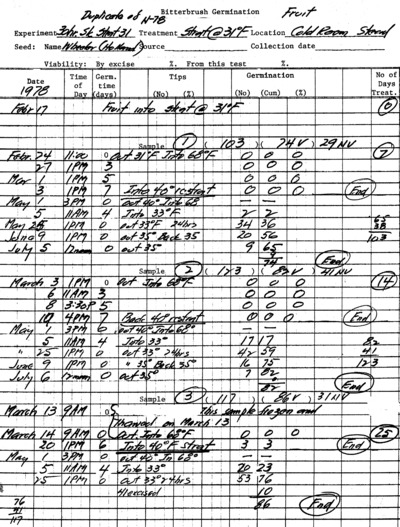 Duplicate of N-78
Bitterbrush Germination
Fruit
Experiment Treatment Strat @ 31°F Location Cold Room
Seed: Name Source Collection date
Viability: By excise %. From this test %.
Date Time of Day Germ. time (days) Tips (No) (%) Germination (No) (Cum) (%) No of Days Treat.
1978
Febr 17 Fruit into Strat @ 31°F 0
Sample 1 ( 103 ) ( 74 V ) 29 NV
Febr. 24 11:00 0 out 31°F Into 68°F 0 0 0 7
27 1PM 3 0 0 0
Mar 1 1PM 5 0 0 0
3 1PM 7 Into 40° restrat 0 0 0 End
May 1 3PM 0 out 40° Into 68 — —
5 11AM 4 Into 33° 2 2
May 25 1PM 0 out 33° 24hrs 34 36 65
June 9 1PM 0 out 35° Back 35 20 56 38
July 5 12noon 0 out 35° 9 65 103
74 End
Sample 2 ( 123 ) ( 82 V ) 41 NV
March 3 1PM 0 out Into 68°F 0 0 0 14
6 11AM 3 0 0 0
8 3:30P 5 0 0 0
10 4PM 7 Back 40° restrat 0 0 0 End
May 1 3PM 0 out 40° Into 68° — —
5 11AM 4 Into 33° 17 17 82
" 25 1PM 0 out 33° 24hrs 42 59 41
June 9 1PM 0 " 35° Back 35° 16 75 123
July 6 12noon 0 out 35° 7 82
82 End
Sample 3 ( 117 ) ( 86 V ) 31 NV
March 13 9AM 0 This sample frozen and
thawed on March 13
March 14 9AM 0 Out. Into 68°F 0 0 0 25
20 1PM 6 Into 40°F Strat 3 3 End
May 1 3PM 0 out 40° In 68° — —
5 11AM 4 Into 33° 20 23
25 1PM 0 out 33° 24hrs 53 76
41 excised 10
76 86 End
41
117